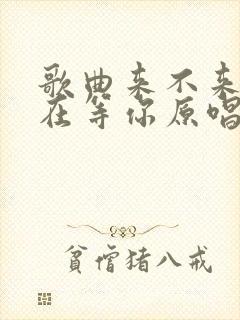 歌曲来不来
在等你原唱
貧僧猪八戒